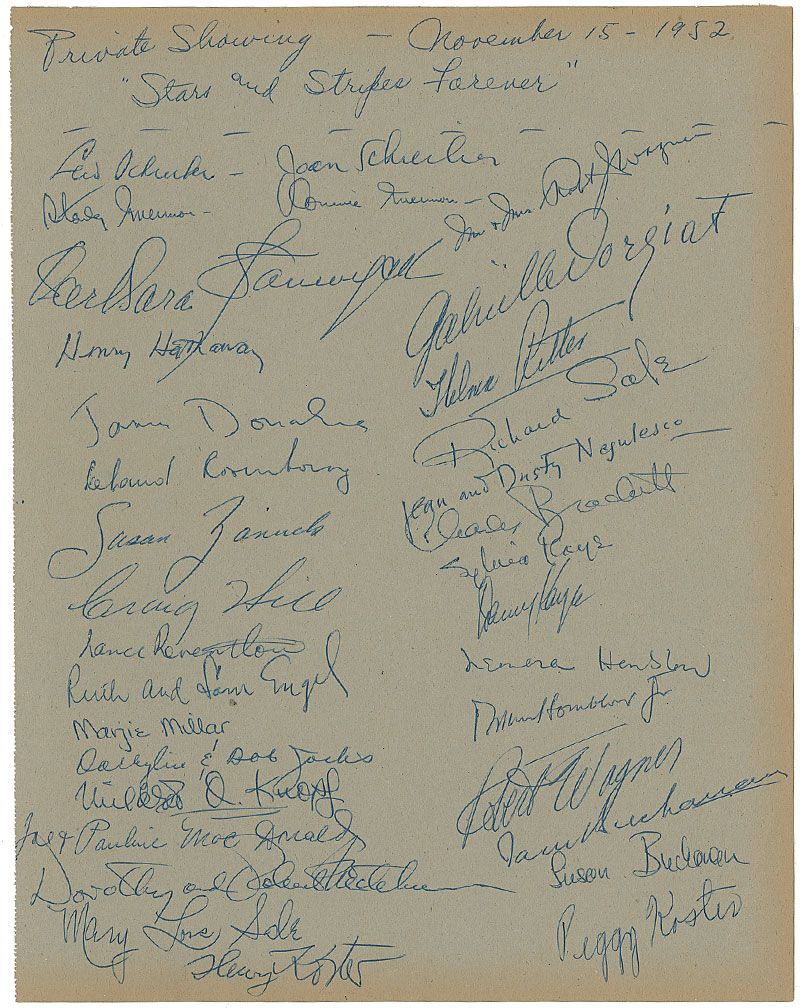 Private Showing - November 15 - 1952
"Stars and Stripes Forever"
Lew Schreiber - Joan Schreiber
Mr & Mrs Robt J Wagner
Barbara Stanwyck
Gabrielle Dorziat
Henry Hathaway
Thelma Ritter
Donahue
Richard Sale
Jean and Dusty Negulesco
Charles Brackett
Susan Zanuck
Sylvia Kaye
Craig Hill
Danny Kaye
Lance Reventlow
Ruth and Sam Engel
Hornblow Jr.
Marjie Millar
& Bob Jacks
Robert Wagner
Mildred O. Knopf
Buchanan
Joe & Pauline Mac Donald
Susan Buchanan
Dorothy and
Mary Loos Sale
Peggy Koster
Henry Koster